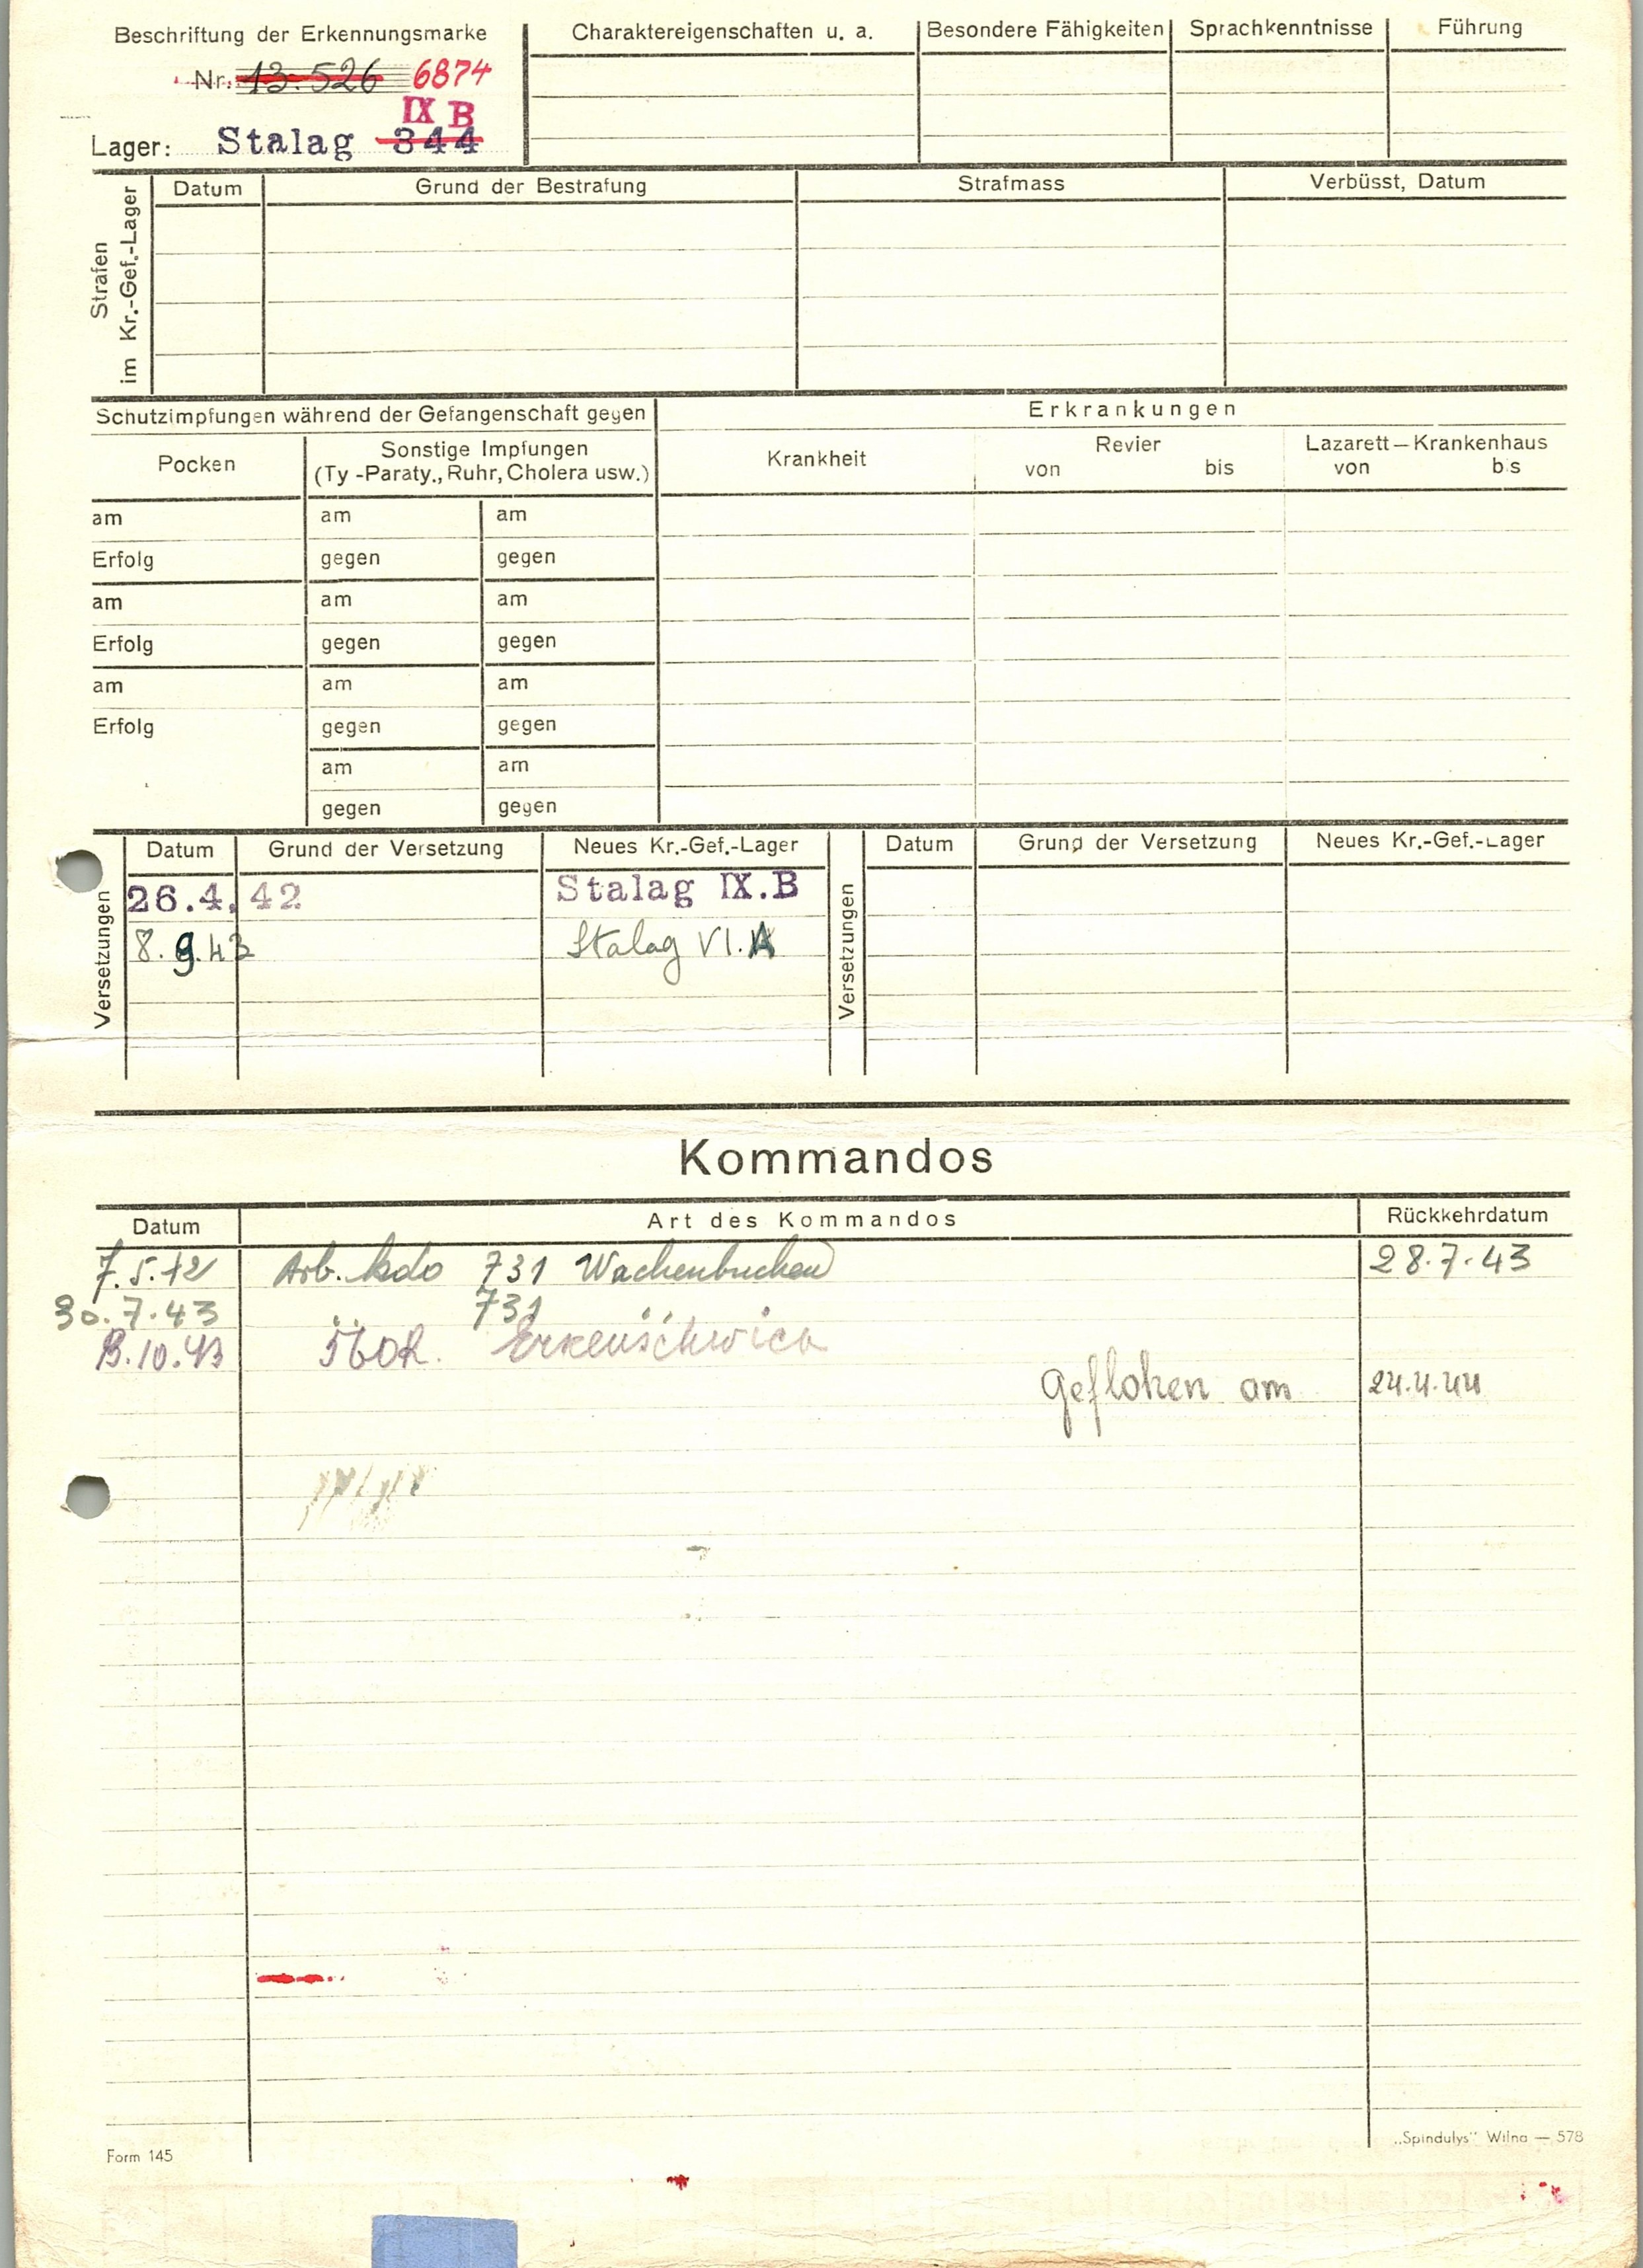 Beschriftung der Erkennungsmarke
Nr. 13.526 6874
IX B
Lager: Stalag 344
Charaktereigenschaften u. a. Besondere Fähigkeiten Sprachkenntnisse Führung
Strafen
im Kr.-Gef.-Lager
Datum Grund der Bestrafung Strafmass Verbüsst, Datum
Schutzimpfungen während der Gefangenschaft gegen
Pocken
Sonstige Impfungen
(Ty -Paraty., Ruhr, Cholera usw.)
am am am
Erfolg gegen gegen
am am am
Erfolg gegen gegen
am am am
Erfolg gegen gegen
am am
gegen gegen
Erkrankungen
Krankheit
Revier
von bis
Lazarett — Krankenhaus
von bis
Versetzungen
Datum Grund der Versetzung Neues Kr.-Gef.-Lager
26.4.42 Stalag IX.B
8.9.43 Stalag VI.A
Versetzungen
Datum Grund der Versetzung Neues Kr.-Gef.-Lager
Kommandos
Datum Art des Kommandos Rückkehrdatum
7.5.42 Arb. Kdo 731 Wachenbuchen 28.7.43
30.7.43 731
.10.43 560R. Erkenschwick
Geflohen am 24.4.44
Form 145
„Spindulys" Wilna — 578